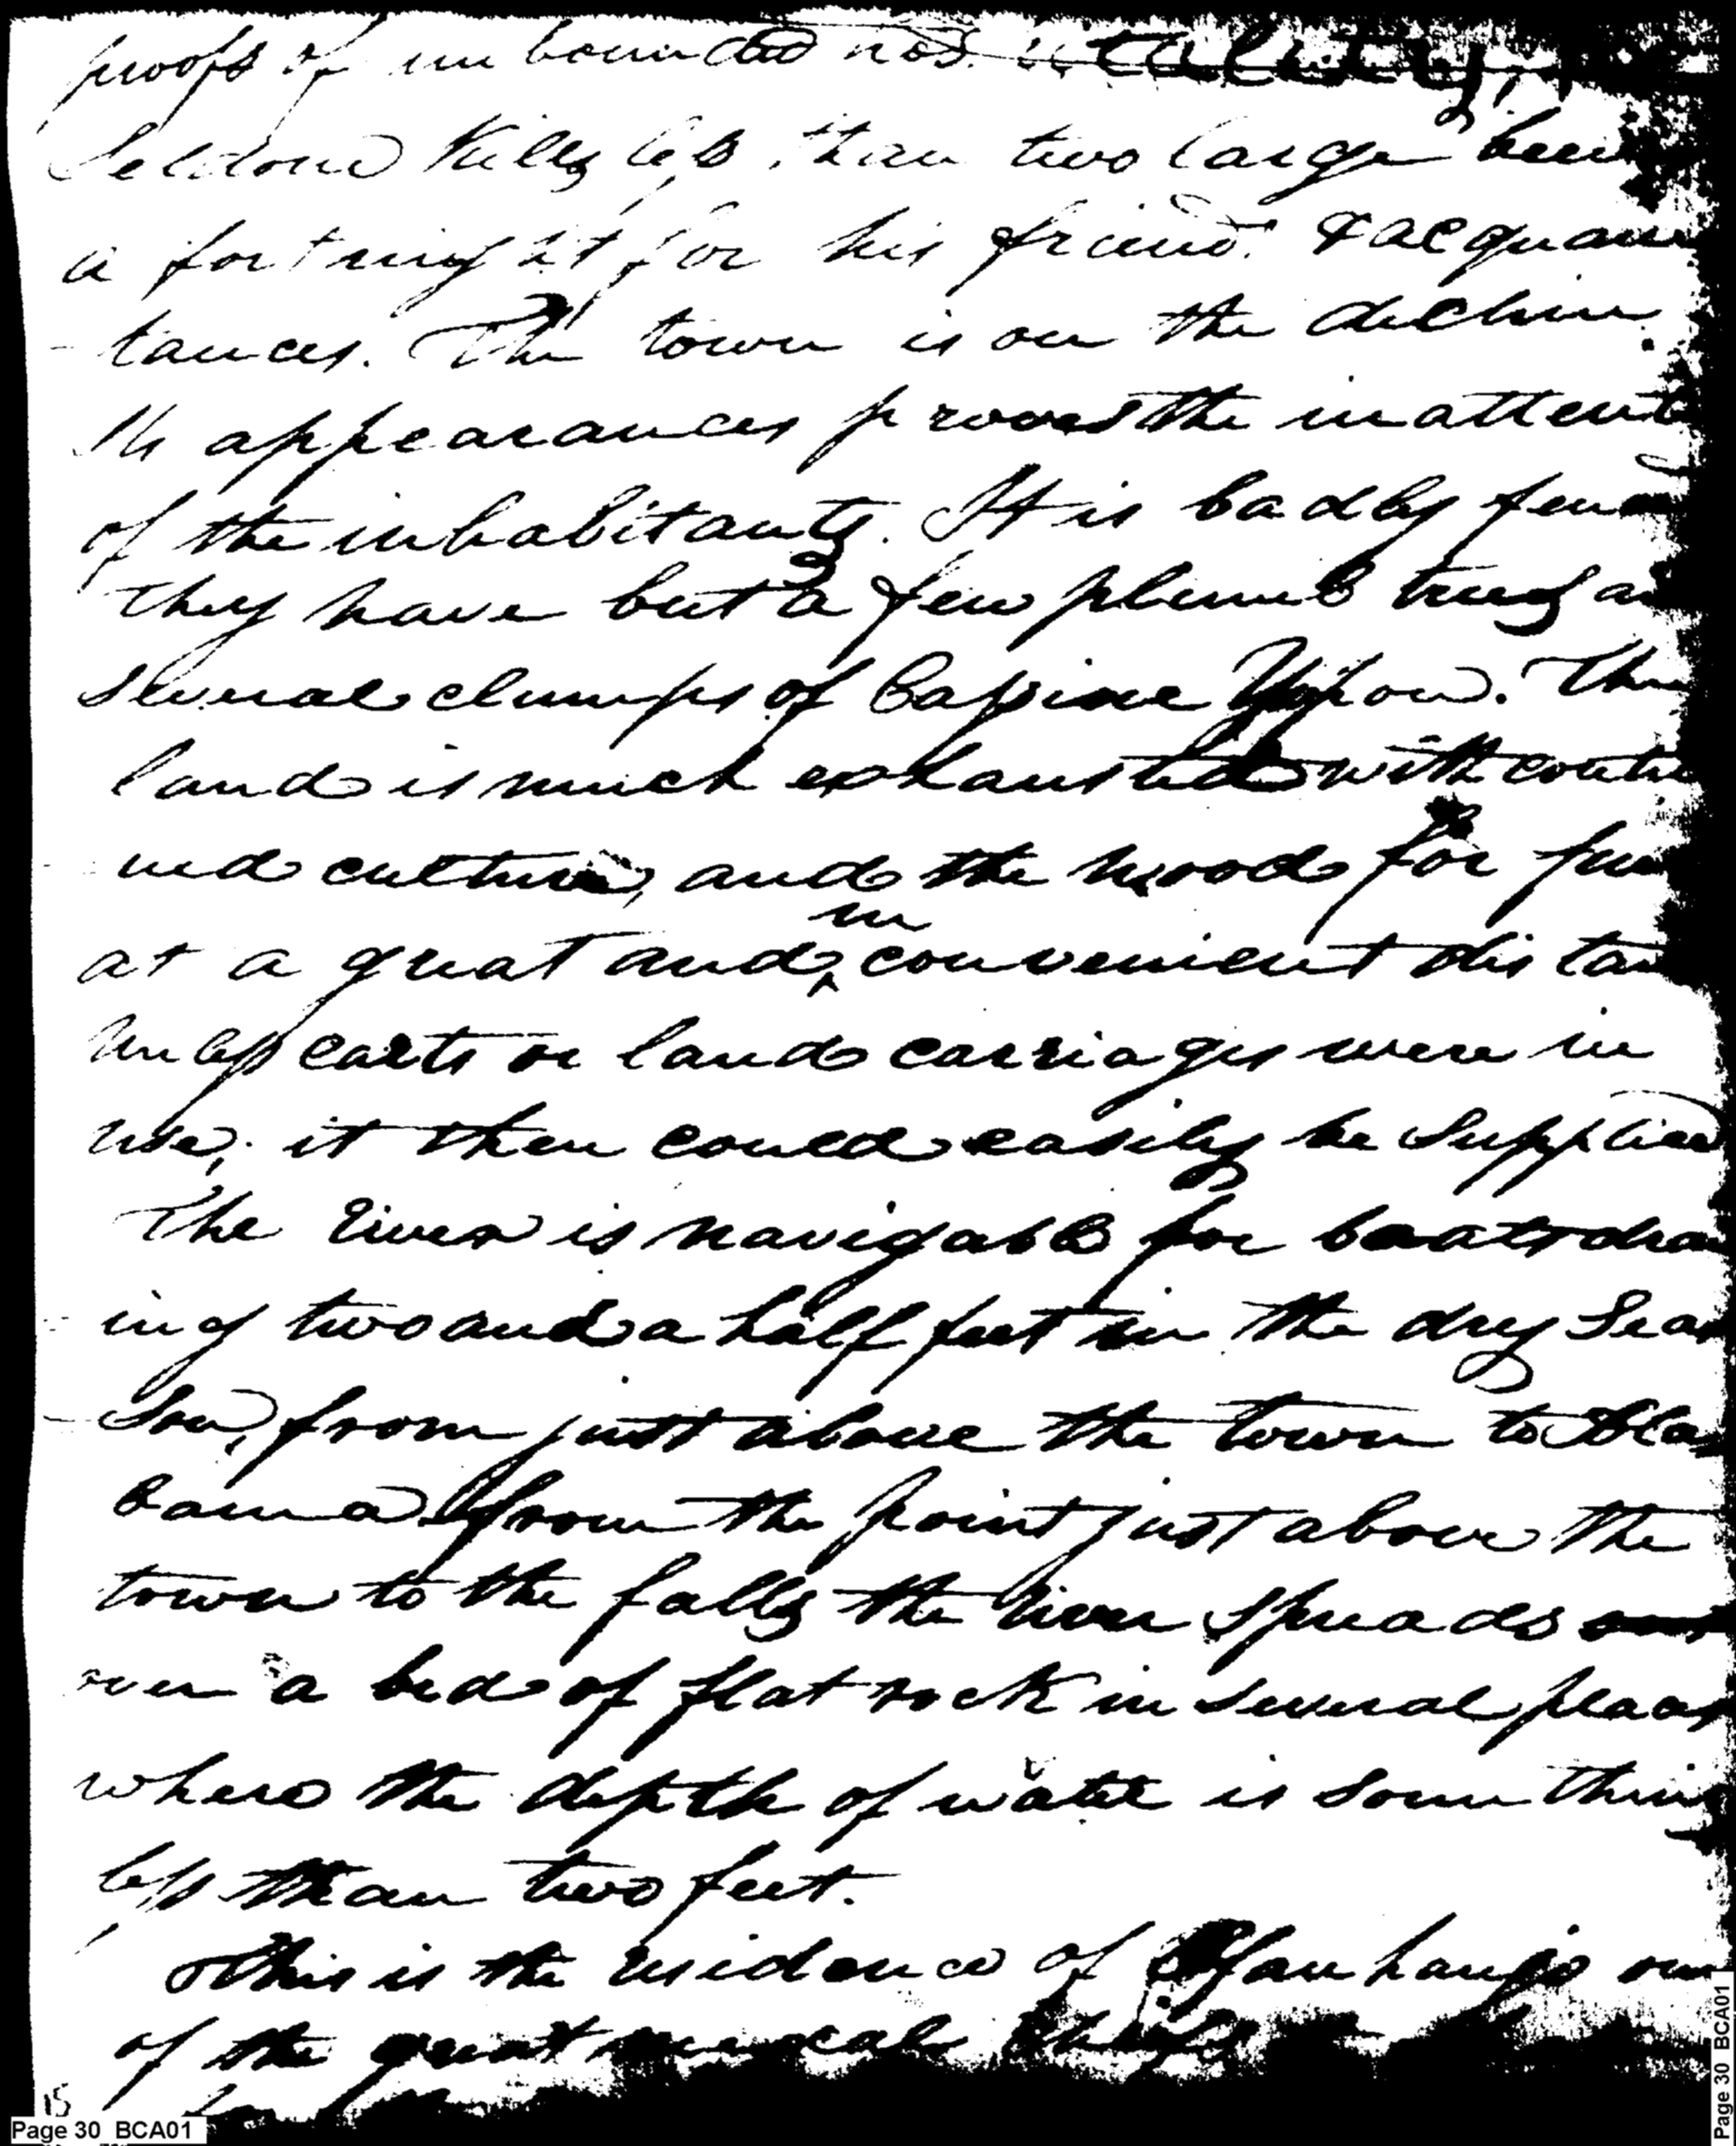 proofs of unbounded hos
Seldom kills less than two large
a fortnight for his friends & acquain
tances. The town is on the decline
Its appearances proves the inattent
of the inhabitants. It is badly fenc
they have but a few plumb trees an
several clumps of Cassine Yupon. The
land is much exhausted with contin
ued culture, and the wood for fuel
at a great and inconvenient distan
unless carts or land carriages were in
use, it then could easily be supplied
The river is navigable for boats draw
ing two and a half feet in the dry sea
son, from just above the town to Ala
bama from the point just above the
town to the falls the river spreads
over a bed of flat rock in several places
where the depth of water is some thing
less than two feet.
This is the residence of Efau haujo one
of the great medal chiefs
15
Page 30 BCA01
Page 30 BCA01